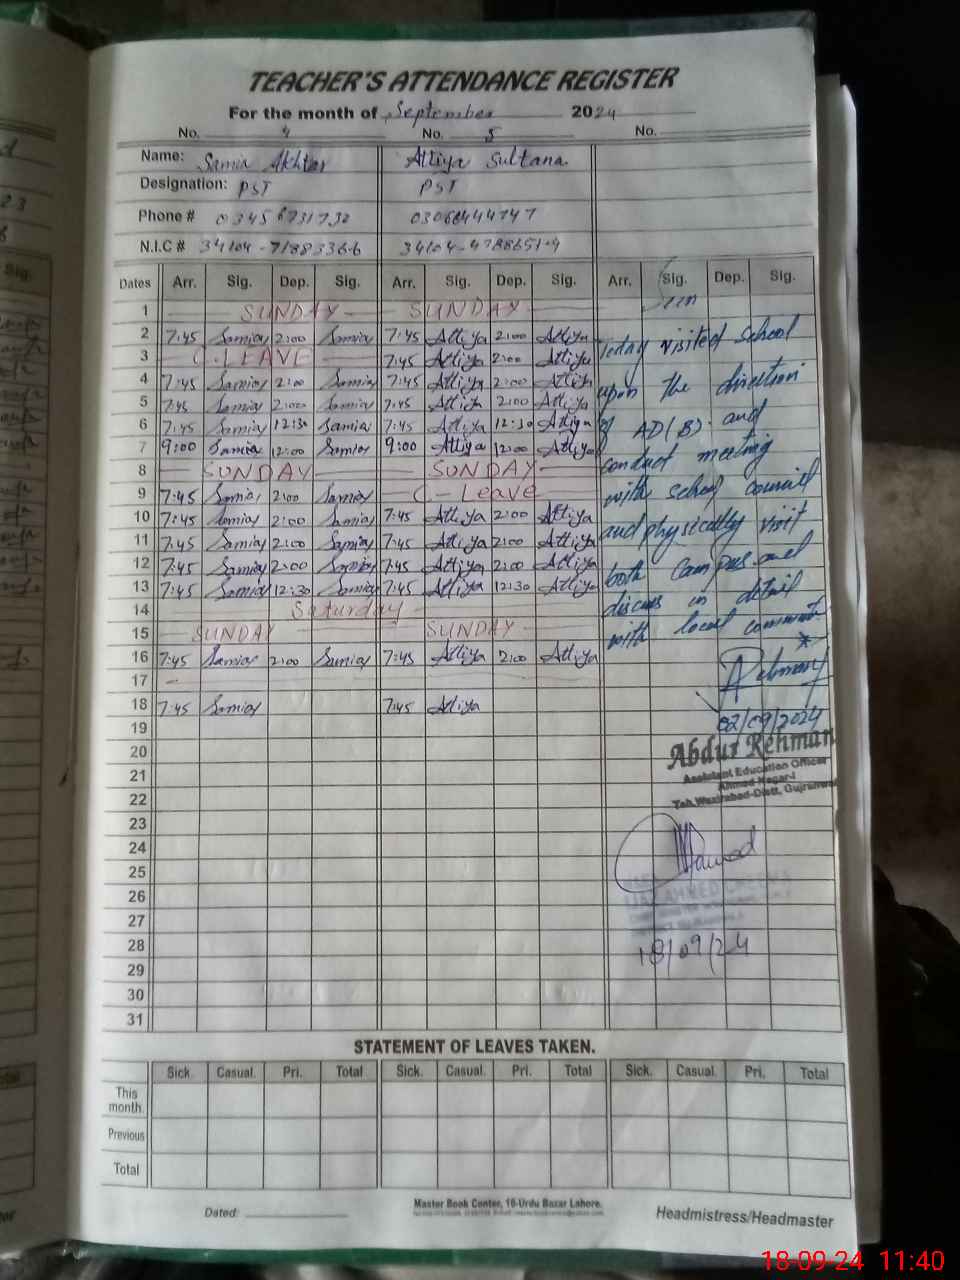 TEACHER'S ATTENDANCE REGISTER
For the month of September 2024
No. 4 No. 5 No.
Name: Samia Akhtar Attiya Sultana
Designation: PST PST
Phone # 0345 6731732 03066444747
N.I.C # 34104-7188336-6 34104-4788651-4
Dates Arr. Sig. Dep. Sig. Arr. Sig. Dep. Sig. Arr. Sig. Dep. Sig.
1 SUNDAY SUNDAY
2 7:45 Samia 2:00 Samia 7:45 Attiya 2:00 Attiya
Today visited school
3 C.LEAVE 7:45 Attiya 2:00 Attiya
4 7:45 Samia 2:00 Samia 7:45 Attiya 2:00 Attiya
upon the direction
5 7:45 Samia 2:00 Samia 7:45 Attiya 2:00 Attiya
6 7:45 Samia 12:30 Samia 7:45 Attiya 12:30 Attiya
of AD(B) and
7 9:00 Samia 12:00 Samia 9:00 Attiya 12:00 Attiya
conduct meeting
8 SUNDAY SUNDAY
9 7:45 Samia 2:00 Samia C-Leave
with school council
10 7:45 Samia 2:00 Samia 7:45 Attiya 2:00 Attiya
and physically visit
11 7:45 Samia 2:00 Samia 7:45 Attiya 2:00 Attiya
12 7:45 Samia 2:00 Samia 7:45 Attiya 2:00 Attiya
both campus and
13 7:45 Samia 12:30 Samia 7:45 Attiya 12:30 Attiya
discuss in detail
14 Saturday
15 SUNDAY SUNDAY
with local
16 7:45 Samia 2:00 Samia 7:45 Attiya 2:00 Attiya
17
18 7:45 Samia 7:45 Attiya
02/09/2024
19
Abdur Rehman
20
Assistant Education Officer
21
Ahmed Nagar-I
Teh.Wazirabad-Distt, Gujranwala
22
23
24
25
26
27
28
18/09/24
29
30
31
STATEMENT OF LEAVES TAKEN.
Sick. Casual. Pri. Total Sick. Casual. Pri. Total Sick. Casual. Pri. Total
This month.
Previous
Total
Dated:
Master Book Center, 16-Urdu Bazar Lahore.
Headmistress/Headmaster
18-09-24 11:40